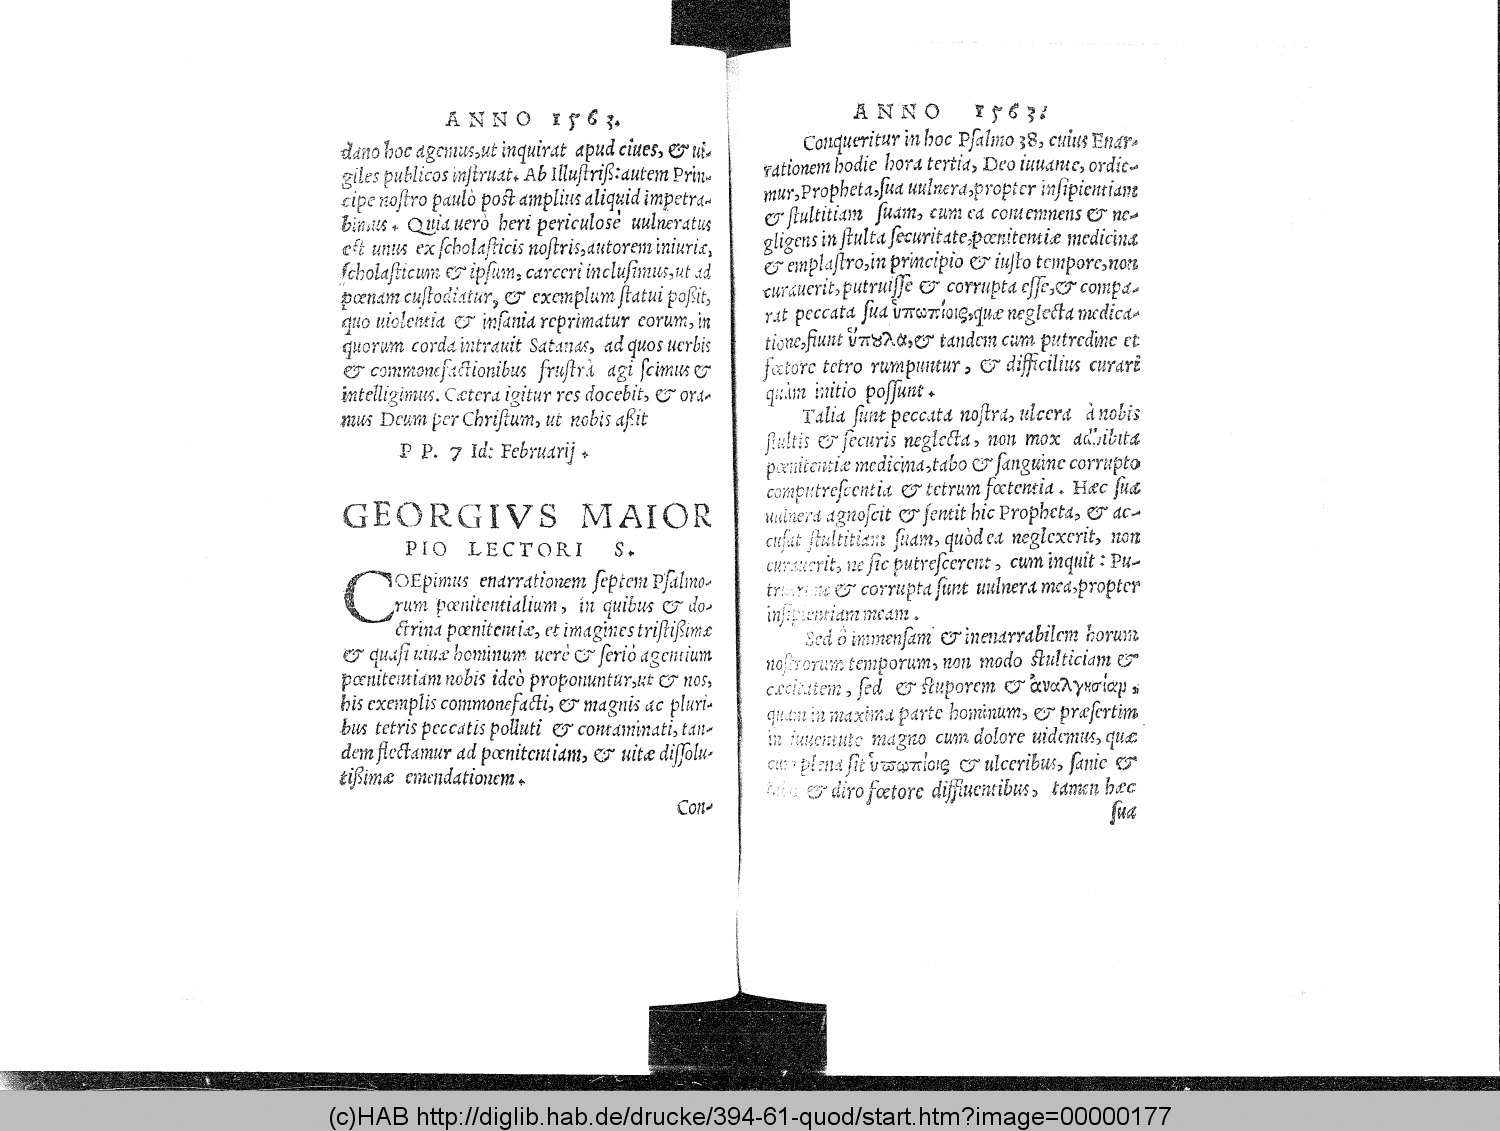 ANNO 1563.
dano hoc agemus, ut inquirat apud ciues, & ui-
giles publicos instruat. Ab Illustriß: autem Prin-
cipe nostro paulò post amplius aliquid impetra-
bimus. Quia uerò heri periculosè uulneratus
est unus ex scholasticis nostris, autorem iniuriæ,
scholasticum & ipsum, carceri inclusimus, ut ad
pœnam custodiatur, & exemplum statui poßit,
quo uiolentia & insania reprimatur eorum, in
quorum corda intrauit Satanas, ad quos uerbis
& commonefactionibus frustrà agi scimus &
intelligimus. Cætera igitur res docebit, & ora-
mus Deum per Christum, ut nobis aßit
P P. 7 Id: Februarij.
GEORGIVS MAIOR
PIO LECTORI S.
COEpimus enarrationem septem Psalmo-
rum pœnitentialium, in quibus & do-
ctrina pœnitentiæ, et imagines tristißimæ
& quasi uiuæ hominum uerè & seriò agentium
pœnitentiam nobis ideò proponuntur, ut & nos,
his exemplis commonefacti, & magnis ac pluri-
bus tetris peccatis polluti & contaminati, tan-
dem flectamur ad pœnitentiam, & uitæ dissolu-
tißimæ emendationem.
Con-
ANNO 1563.
Conqueritur in hoc Psalmo 38, cuius Enar-
rationem hodie hora tertia, Deo iuuante, ordie-
mur, Propheta, sua uulnera, propter insipientiam
& stultitiam suam, cum ea contemnens & ne-
gligens in stulta securitate, pœnitentiæ medicina
& emplastro, in principio & iusto tempore, non
curauerit, putruisse & corrupta esse, & compa-
rat peccata sua ὑπωπίοις, quæ neglecta medica-
tione, fiunt ὕπουλα, & tandem cum putredine et
fœtore tetro rumpuntur, & difficilius curari
quàm initio possunt.
Talia sunt peccata nostra, ulcera à nobis
stultis & securis neglecta, non mox adhibita
pœnitentiæ medicina, tabo & sanguine corrupto
computrescentia & tetrum fœtentia. Hæc sua
uulnera agnoscit & sentit hic Propheta, & ac-
cusat stultitiam suam, quòd ea neglexerit, non
curauerit, ne sic putrescerent, cum inquit: Pu-
& corrupta sunt uulnera mea, propter
insipientiam meam.
Sed ô immensam & inenarrabilem horum
nostrorum temporum, non modo stulticiam &
cæcitatem, sed & stuporem & ἀναλγησίαμ,
quam in maxima parte hominum, & præsertim
in iuuentute magno cum dolore uidemus, quæ
cum plena sit ὑπωπίοις & ulceribus, sanie &
& diro fœtore diffluentibus, tamen hæc
sua
(c)HAB http://diglib.hab.de/drucke/394-61-quod/start.htm?image=00000177